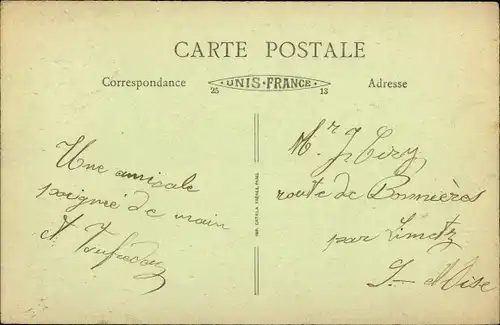 CARTE POSTALE
Correspondance
UNIS-FRANCE
25 13
Adresse
Une amicale
poignée de main
IMP. CATALA FRÈRES, PARIS
Mr J.
route de Bonnières
par Limetz
S- d'Oise